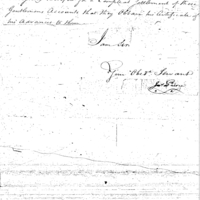 for a Compleat Settlement of those
Gentlemens Accounts that they Obtain his Certificate of
his Advance to them
I am Sir
Your Obdt. Servant